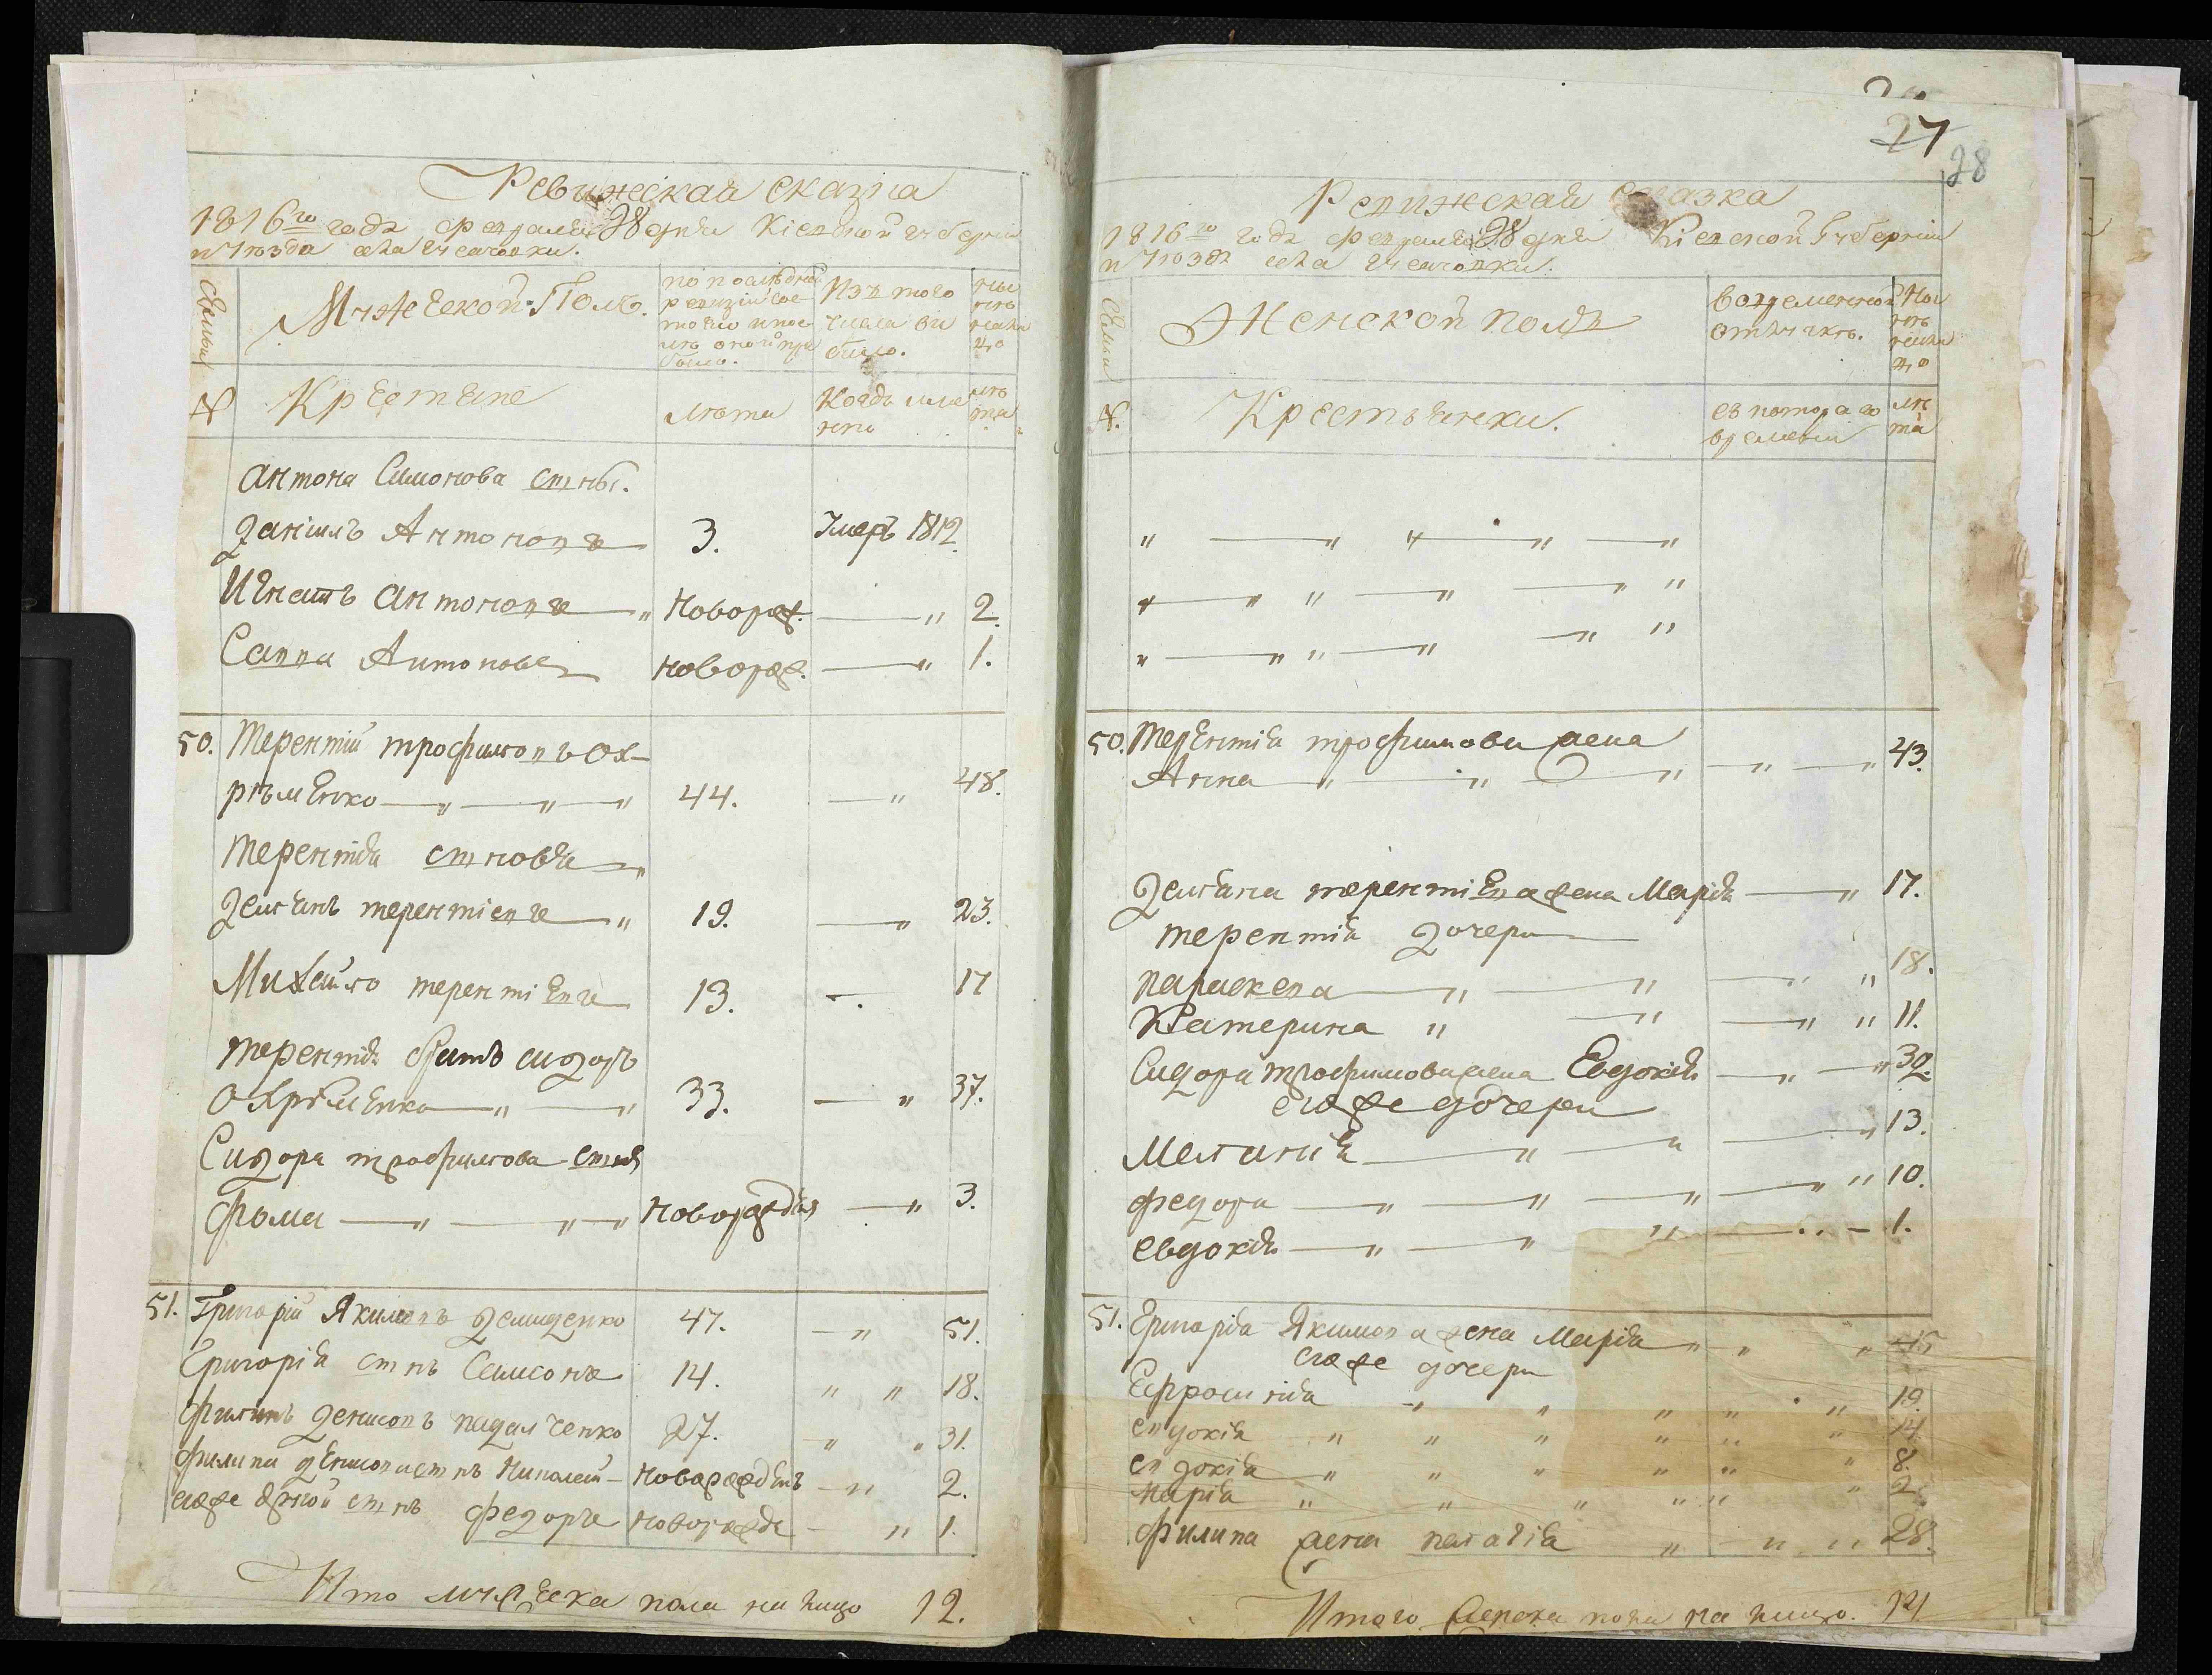 Ревижская сказка
1816го года февраля 28 дня Кіевской губерніи
Семьи
Мужеской Полъ.
по последней
ревизіи сос-
тояло и пос-
ле оной при
было.
Изъ того
числа вы
было.
ныне
налицо
№
Крестяне
лета
Когда имянно
лета
Антона Симонова сыны.
Даниилъ Антоновъ 3. Умеръ 1812
Игнатъ Антоновъ " Новорож. — " 2.
Савва Антоновъ новорож. — " 1.
50. Терентій трофимовъ Ох-
рѣменко — " — " — " 44. — " 48.
Терентія сыновья — "
Демянъ терентіевъ — " 19. — " 23.
Михайло терентіевъ 13. — . 17
Терентія братъ сидоръ
Охрѣменко — " — " 33. — " 37.
Сидора трофимова сынъ
фома — " — " — " новорожденъ — " 3.
51. Григорій Якимовъ демиденко 47. — " 51.
Григорія сынъ Самсонъ 14. " " 18.
филипъ денисовъ надалченко 27. — " " 31.
филипа денисова сынъ Николай — новорожденъ — " 2.
егоже другой сынъ федоръ новорожде — " 1.
Ито мужеска пола на лицо 12.
27
28
Ревижская сказка
1816го года февраля 28 дня Кіевской Губерніи
Семьи
Женской полъ
во временной
отлучке.
Ныне
налицо
№.
Крестьянки.
съ котораго
времени
лета
" — " " — " — "
" — " " — " — " "
" — " " — " — " "
50. Терентія трофимова жена
Анна — " — " — " — " — " 43.
Демяна терентіева жена Марія — " 17.
терентія дочери —
параскева — " — " — " " 18.
Катерина " — " — " " 11.
Сидора трофимова жена Евдокія — " — " 32.
егоже дочери
Меланія — " — " — " 13.
федора — " — " — " — " " 10.
евдокія — " — " " — " — 1.
51. Григорія Якимова жена Марія " — " " 45
егоже дочери
Ефросинія — " " " " " 19.
евдокія " " " " " " 14
евдокія " " " " " " 8.
марія " " " " " " 2.
филипа жена наталія " — " " 28.
Итого женска пола на лицо. 12